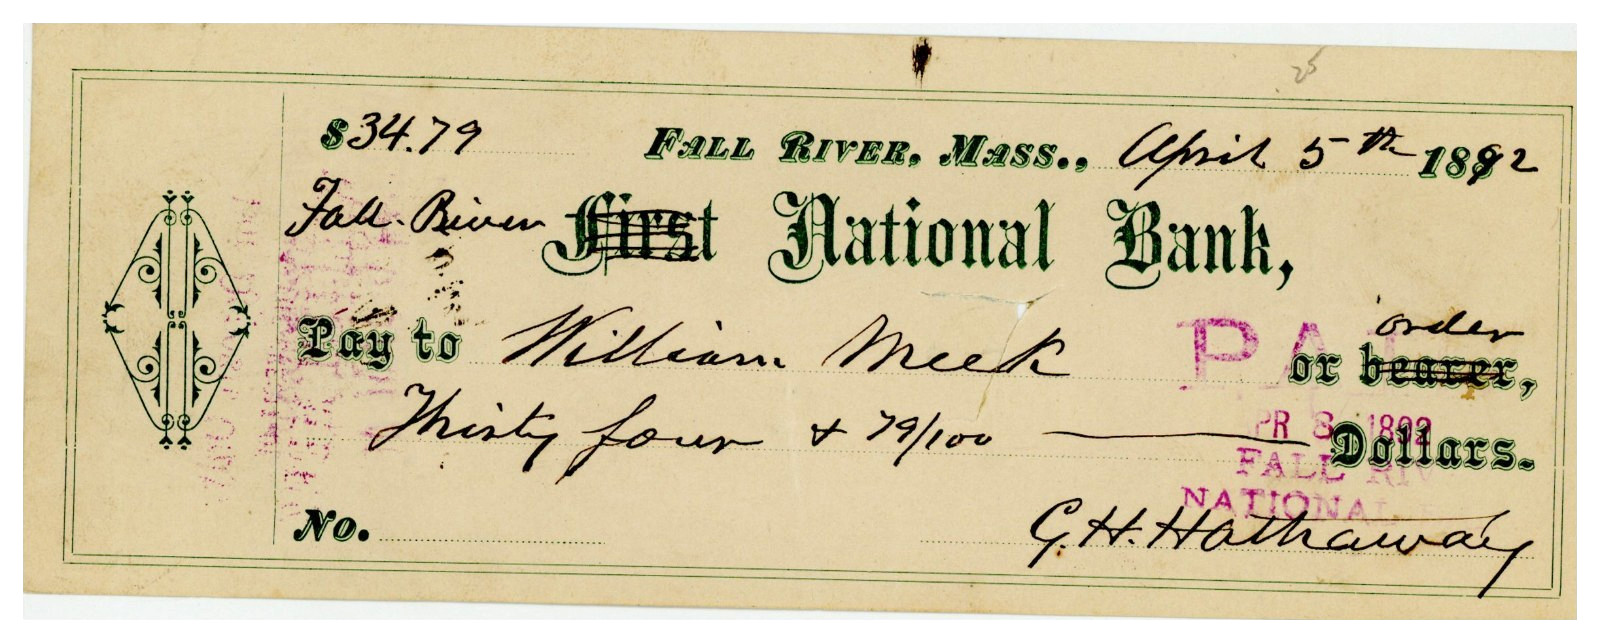 25
$34.79 FALL RIVER, MASS., April 5th 1892
Fall River First National Bank,
Pay to William Meek or bearer, order
Thirty four & 79/100 Dollars.
PAI
PR 8 1892
FALL RIV
NATIONAL
No.
G. H. Hathaway